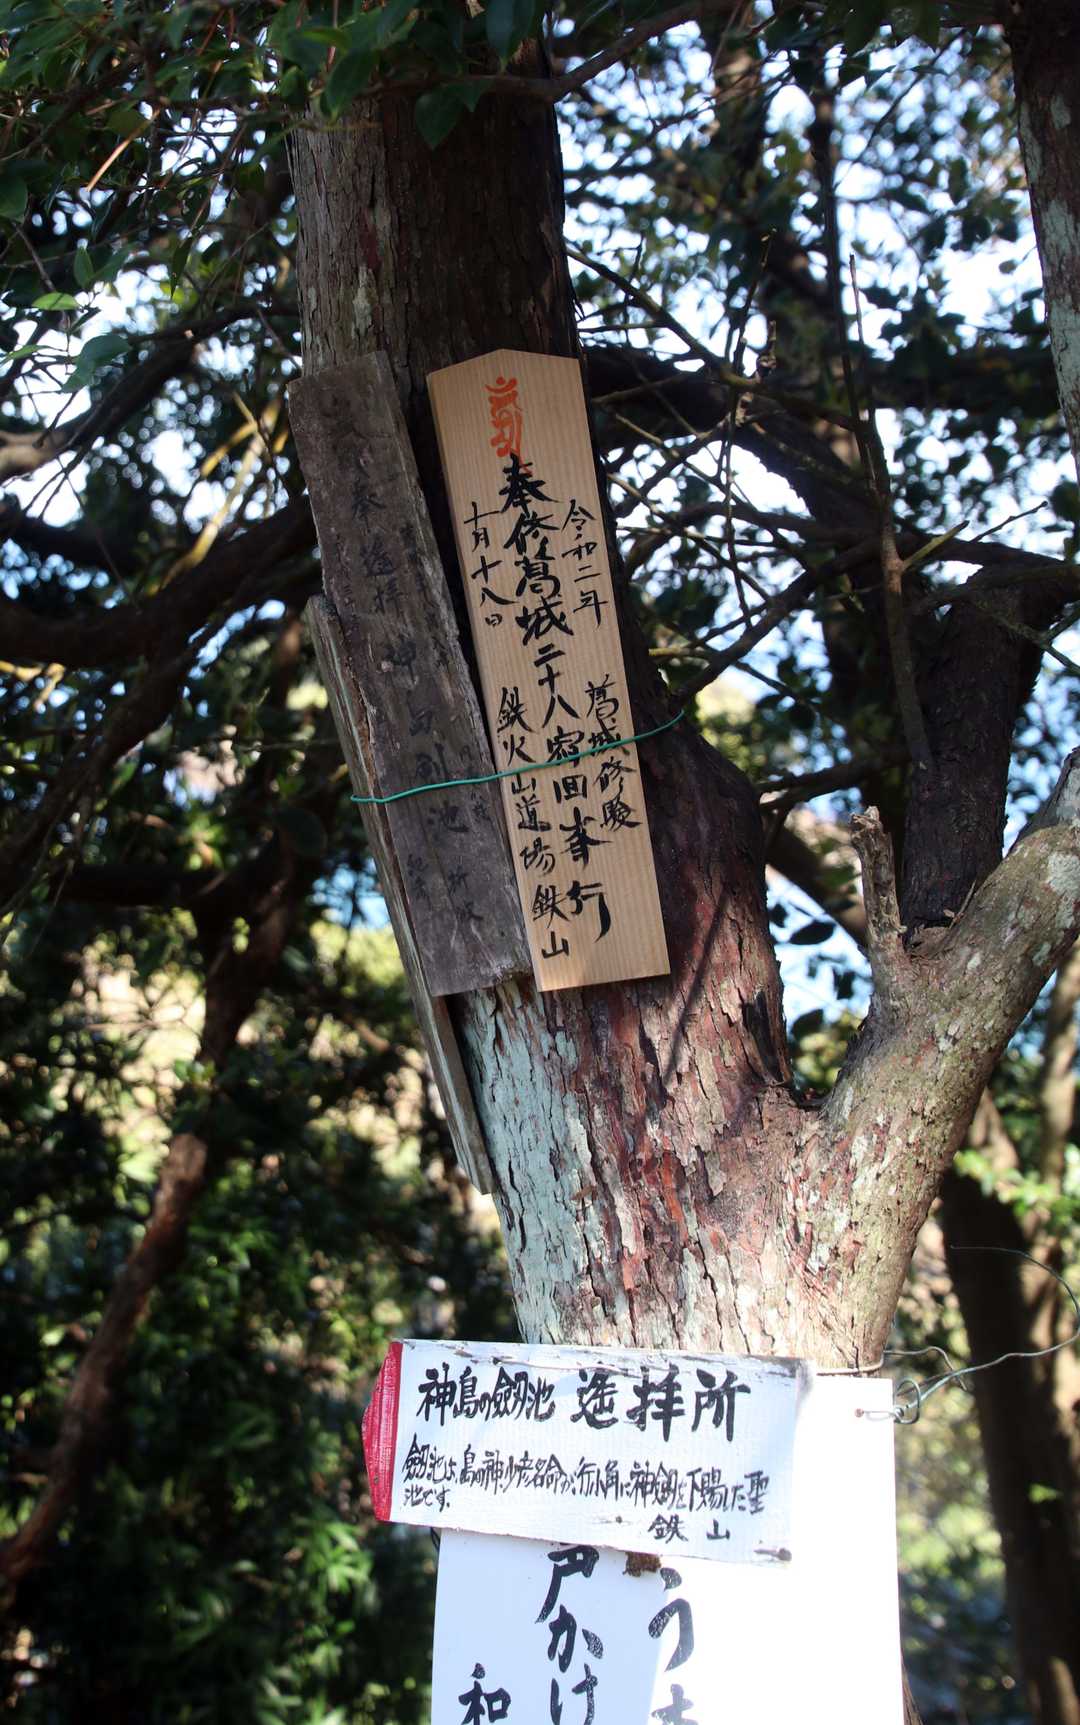 令和二年
葛城修験
奉修葛城二十八宿回峯行
十月十八日
鉄火山道場鉄山
奉遥拝神島剣池
神島の劔池 遥拝所
劔池は、島の神、少彦名命が、行小角に神劔を下賜した聖
池です。
鉄山
う
戸かけ
和